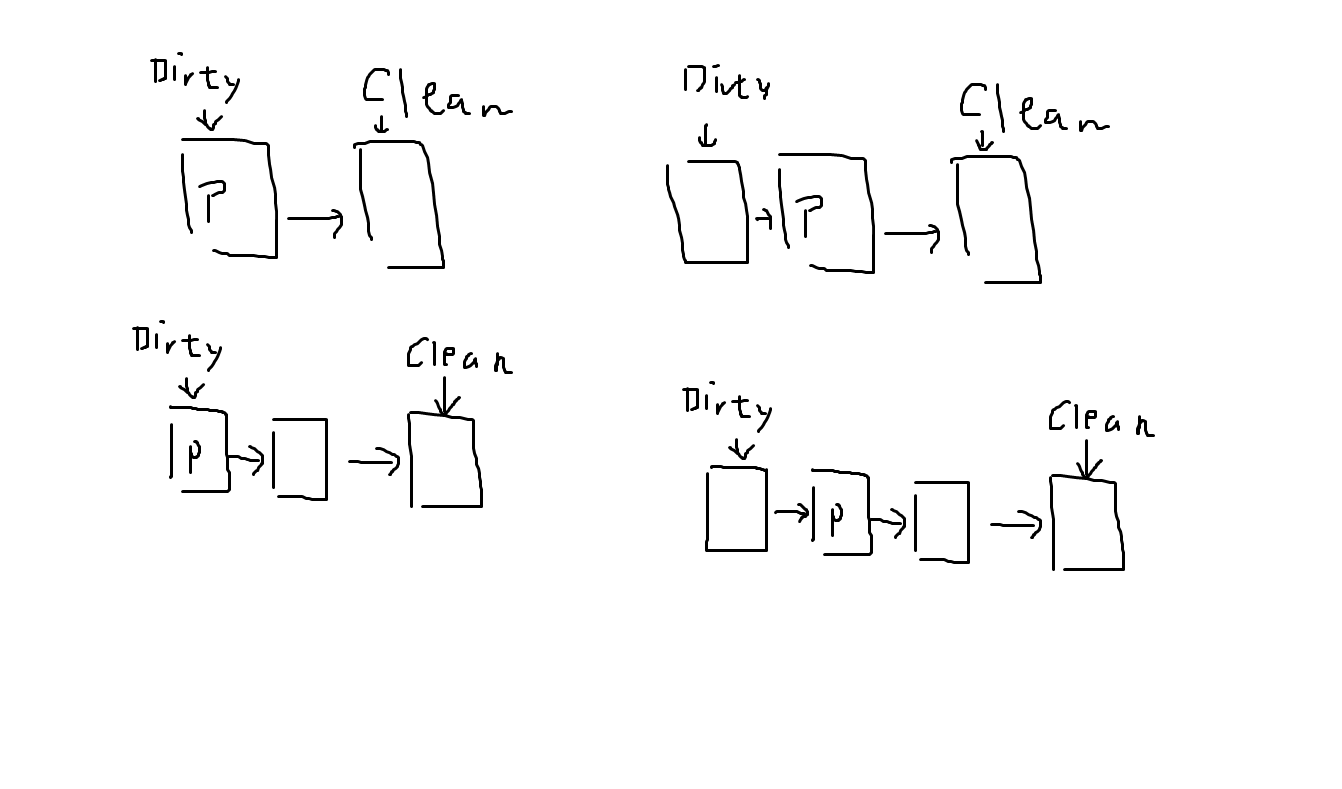 Dirty
Clean
P
Dirty
Clean
P
Dirty
Clean
P
Dirty
Clean
P